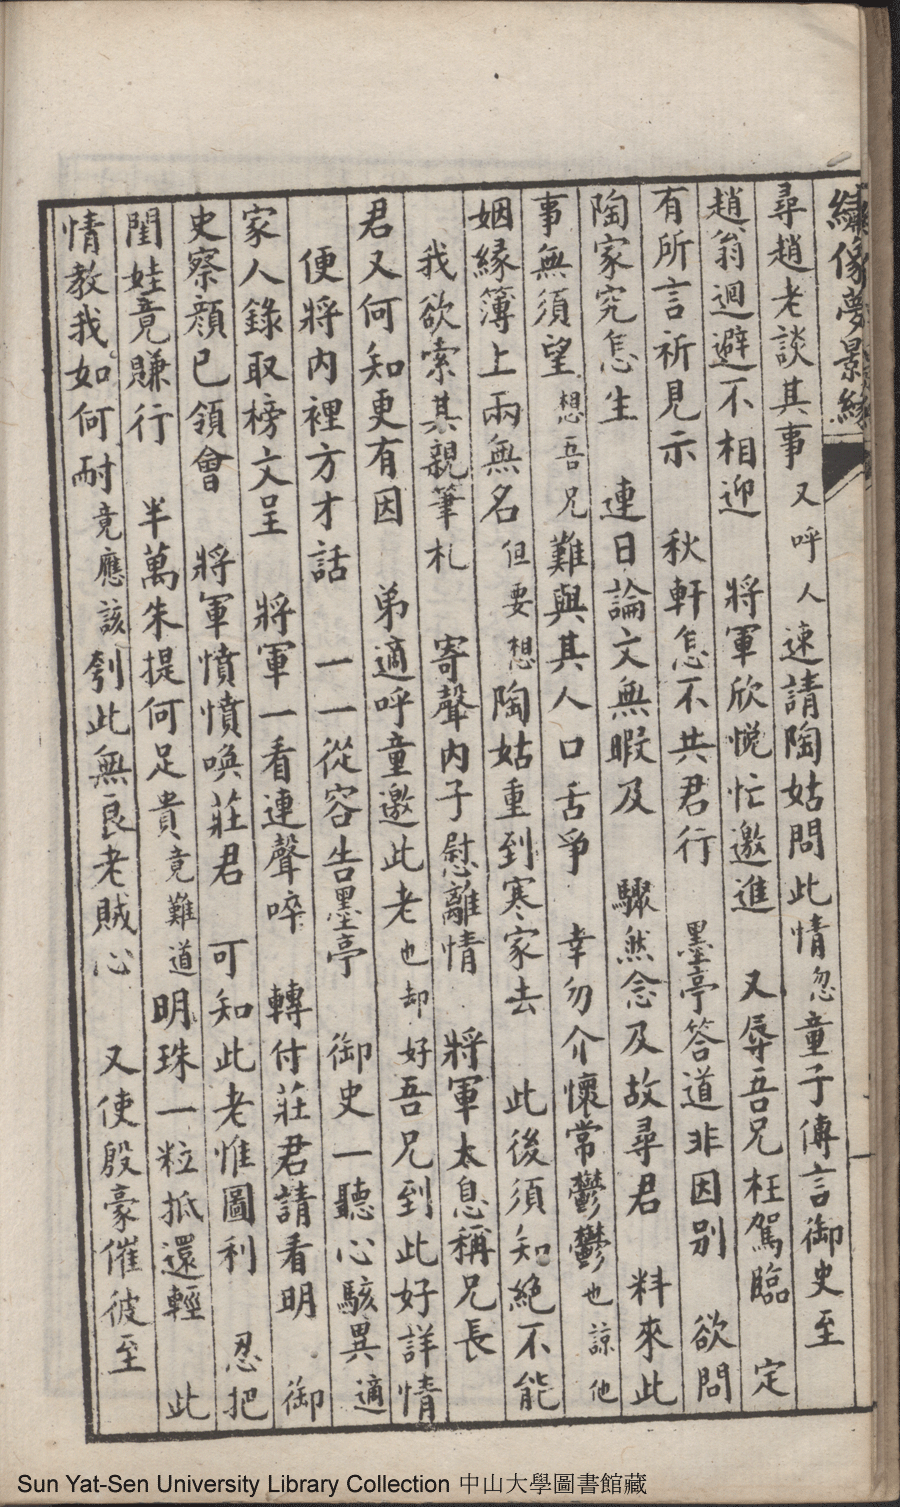 繡像夢影緣
尋趙老談其事 又呼人速請陶姑問此情忽童子傳言御史至
趙翁迴避不相迎 將軍欣悦忙邀進 又辱吾兄枉駕臨 定
有所言祈見示 秋軒怎不共君行 墨亭答道非因别 欲問
陶家究怎生 連日論文無暇及 驟然念及故尋君 料來此
事無須望想吾兄難與其人口舌爭 幸勿介懷常鬱鬱也諒他
姻緣簿上兩無名但要想陶姑重到寒家去 此後須知絕不能
我欲索其親筆札 寄聲內子慰離情 將軍太息稱兄長
君又何知更有因 弟適呼童邀此老也却好吾兄到此好詳情
便將内裡方才話 一一從容告墨亭 御史一聽心駭異適
家人錄取榜文呈 將軍一看連聲啐 轉付莊君請看明 御
史察顔已領會 將軍憤憤喚莊君 可知此老惟圖利 忍把
閨娃竟賺行 半萬朱提何足貴竟難道明珠一粒抵還輕 此
情教我如何耐竟應該刳此無良老賊心 又使殷豪催彼至
Sun Yat-Sen University Library Collection 中山大學圖書館藏